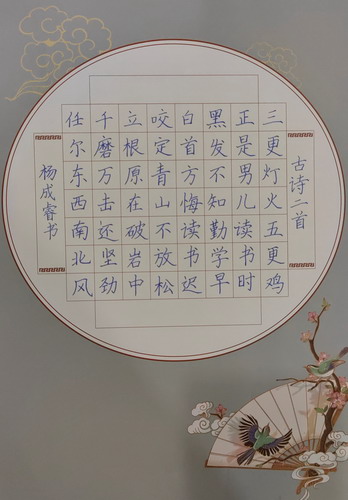 古诗二首
三更灯火五更鸡
正是男儿读书时
黑发不知勤学早
白首方悔读书迟
咬定青山不放松
立根原在破岩中
千磨万击还坚劲
任尔东西南北风
杨成睿书